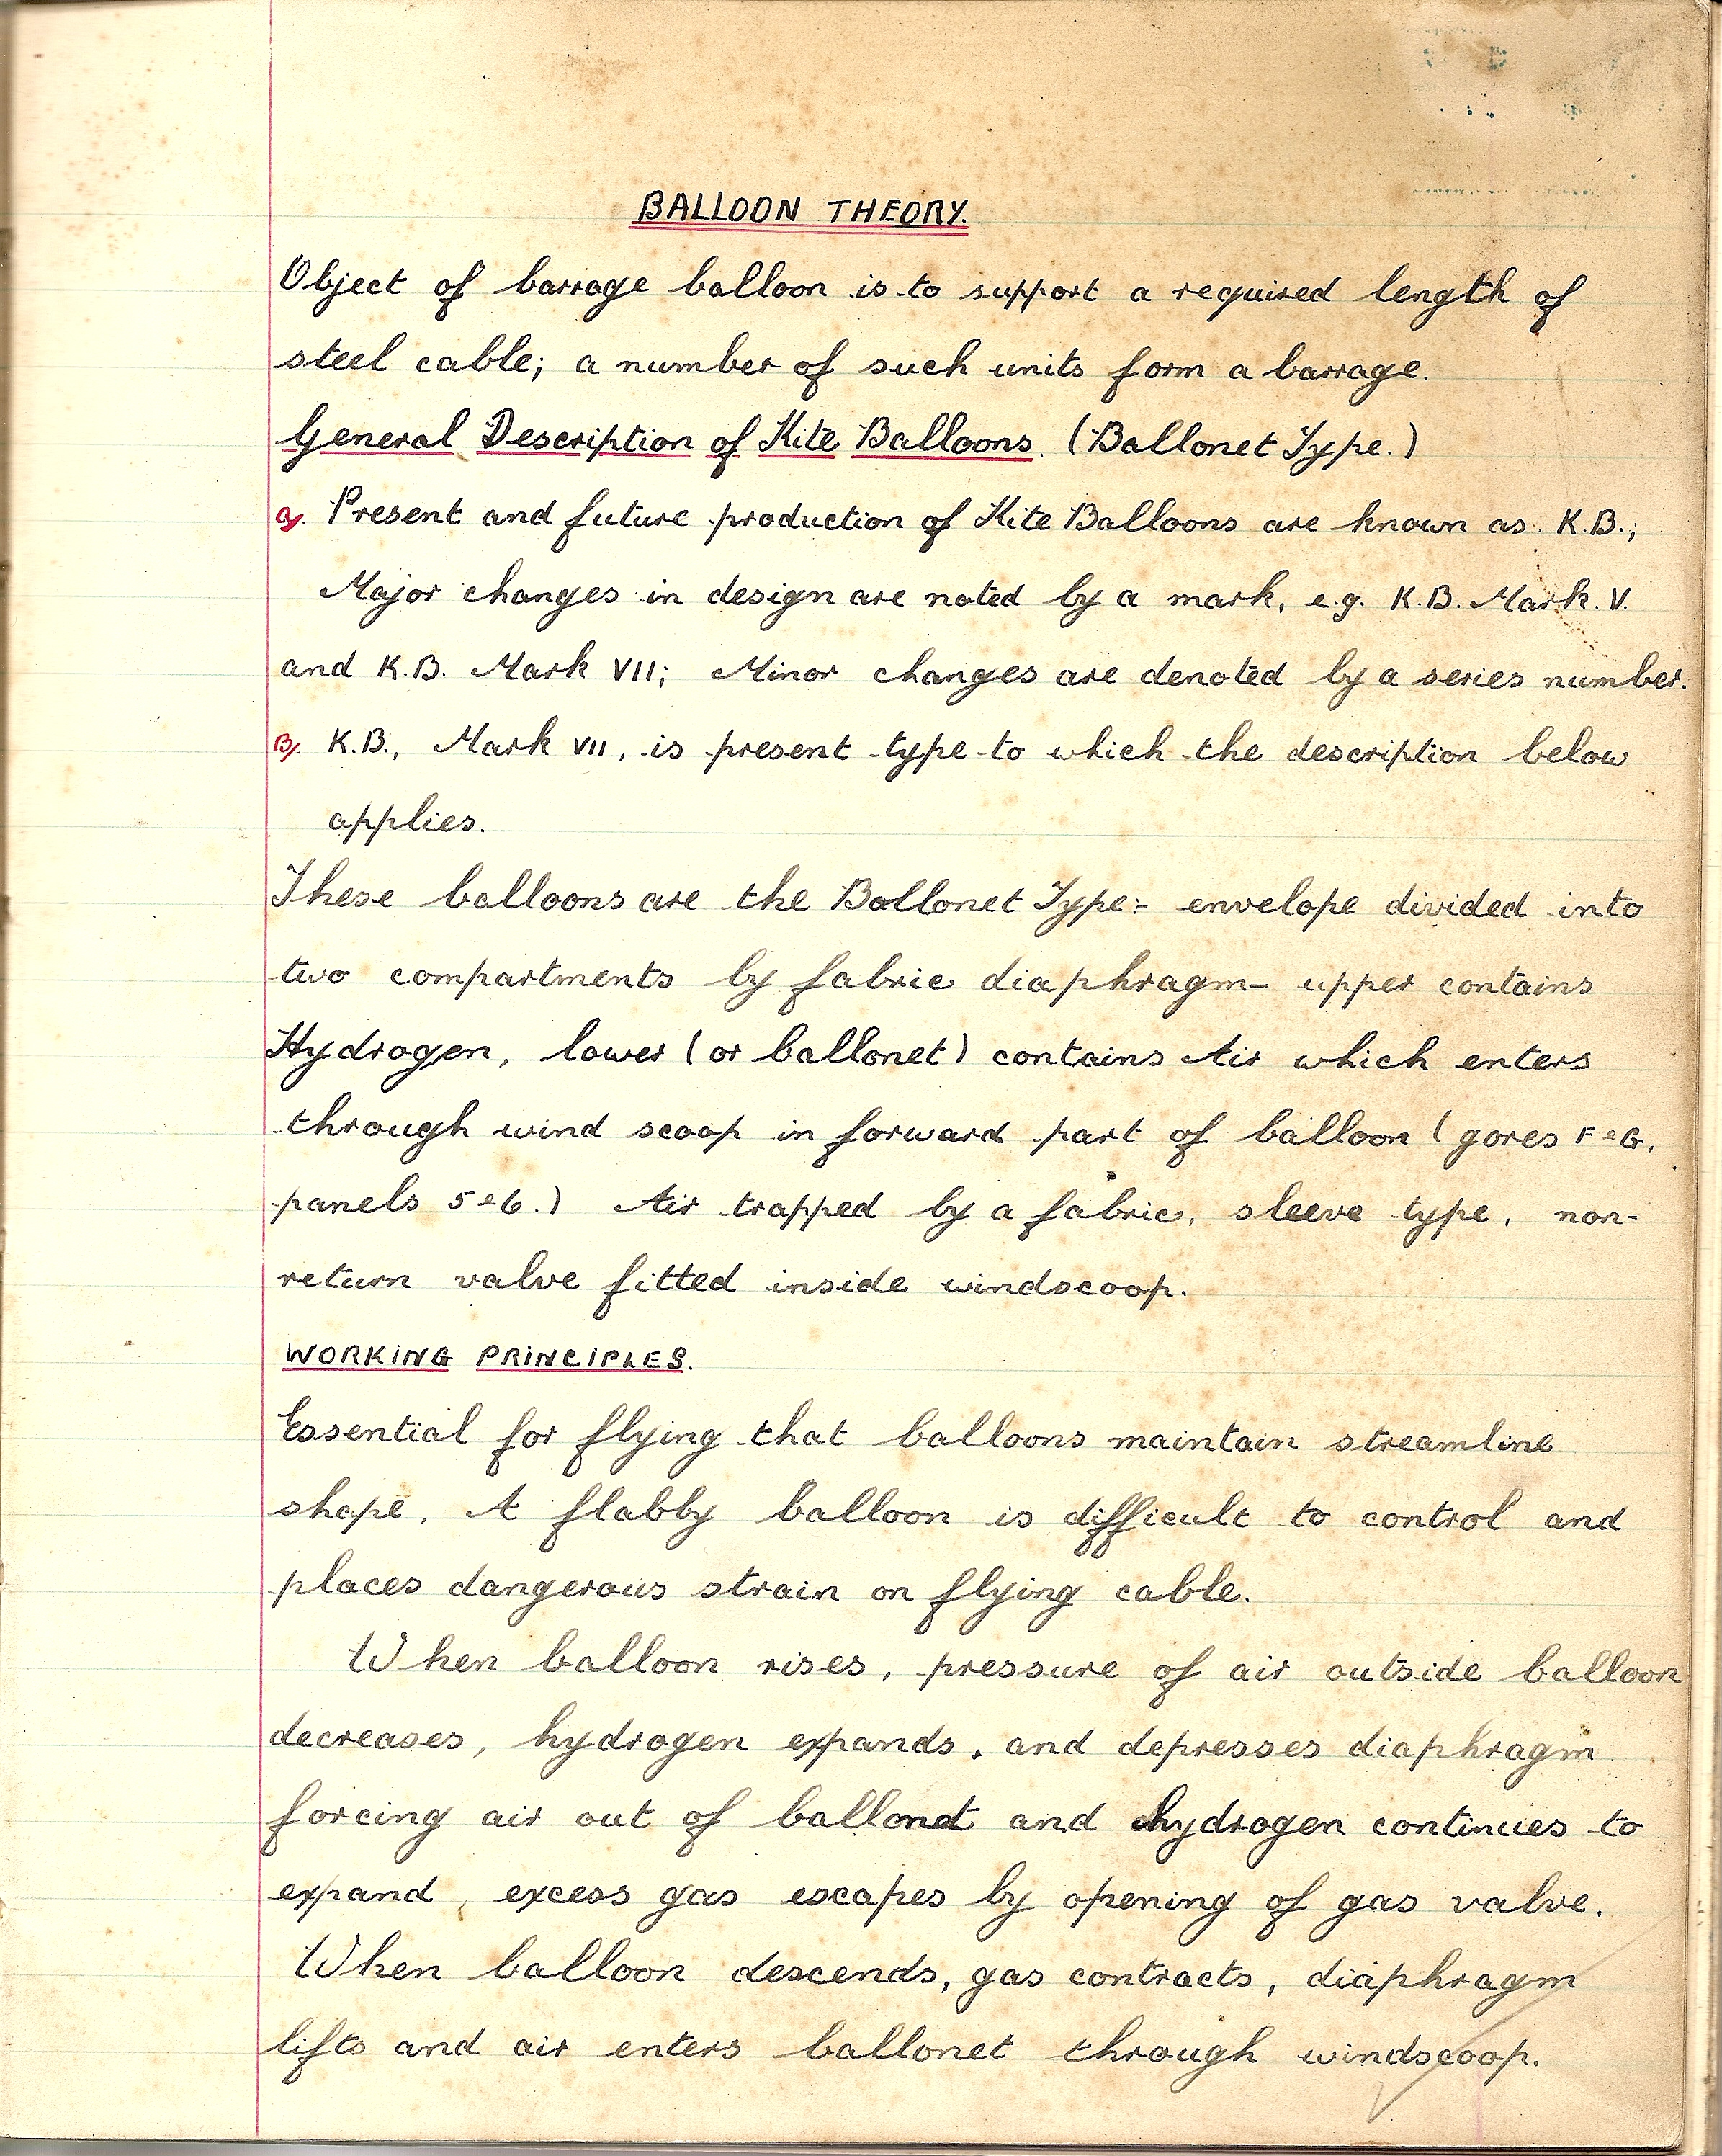 BALLOON THEORY.
Object of barrage balloon is to support a required length of
steel cable; a number of such units form a barrage.
General Description of Kite Balloons. (Ballonet Type.)
a). Present and future production of Kite Balloons are known as K.B.;
Major changes in design are noted by a mark, e.g. K.B. Mark. V.
and K.B. Mark VII; Minor changes are denoted by a series number.
B). K.B., Mark VII, is present type to which the description below
applies.
These balloons are the Ballonet Type:- envelope divided into
two compartments by fabric diaphragm - upper contains
Hydrogen, lower (or ballonet) contains Air which enters
through wind scoop in forward part of balloon (gores F & G,
panels 5 & 6.) Air trapped by a fabric, sleeve type, non-
return valve fitted inside windscoop.
WORKING PRINCIPLES.
Essential for flying that balloons maintain streamline
shape. A flabby balloon is difficult to control and
places dangerous strain on flying cable.
When balloon rises, pressure of air outside balloon
decreases, hydrogen expands, and depresses diaphragm
forcing air out of ballonet and hydrogen continues to
expand, excess gas escapes by opening of gas valve.
When balloon descends, gas contracts, diaphragm
lifts and air enters ballonet through windscoop.